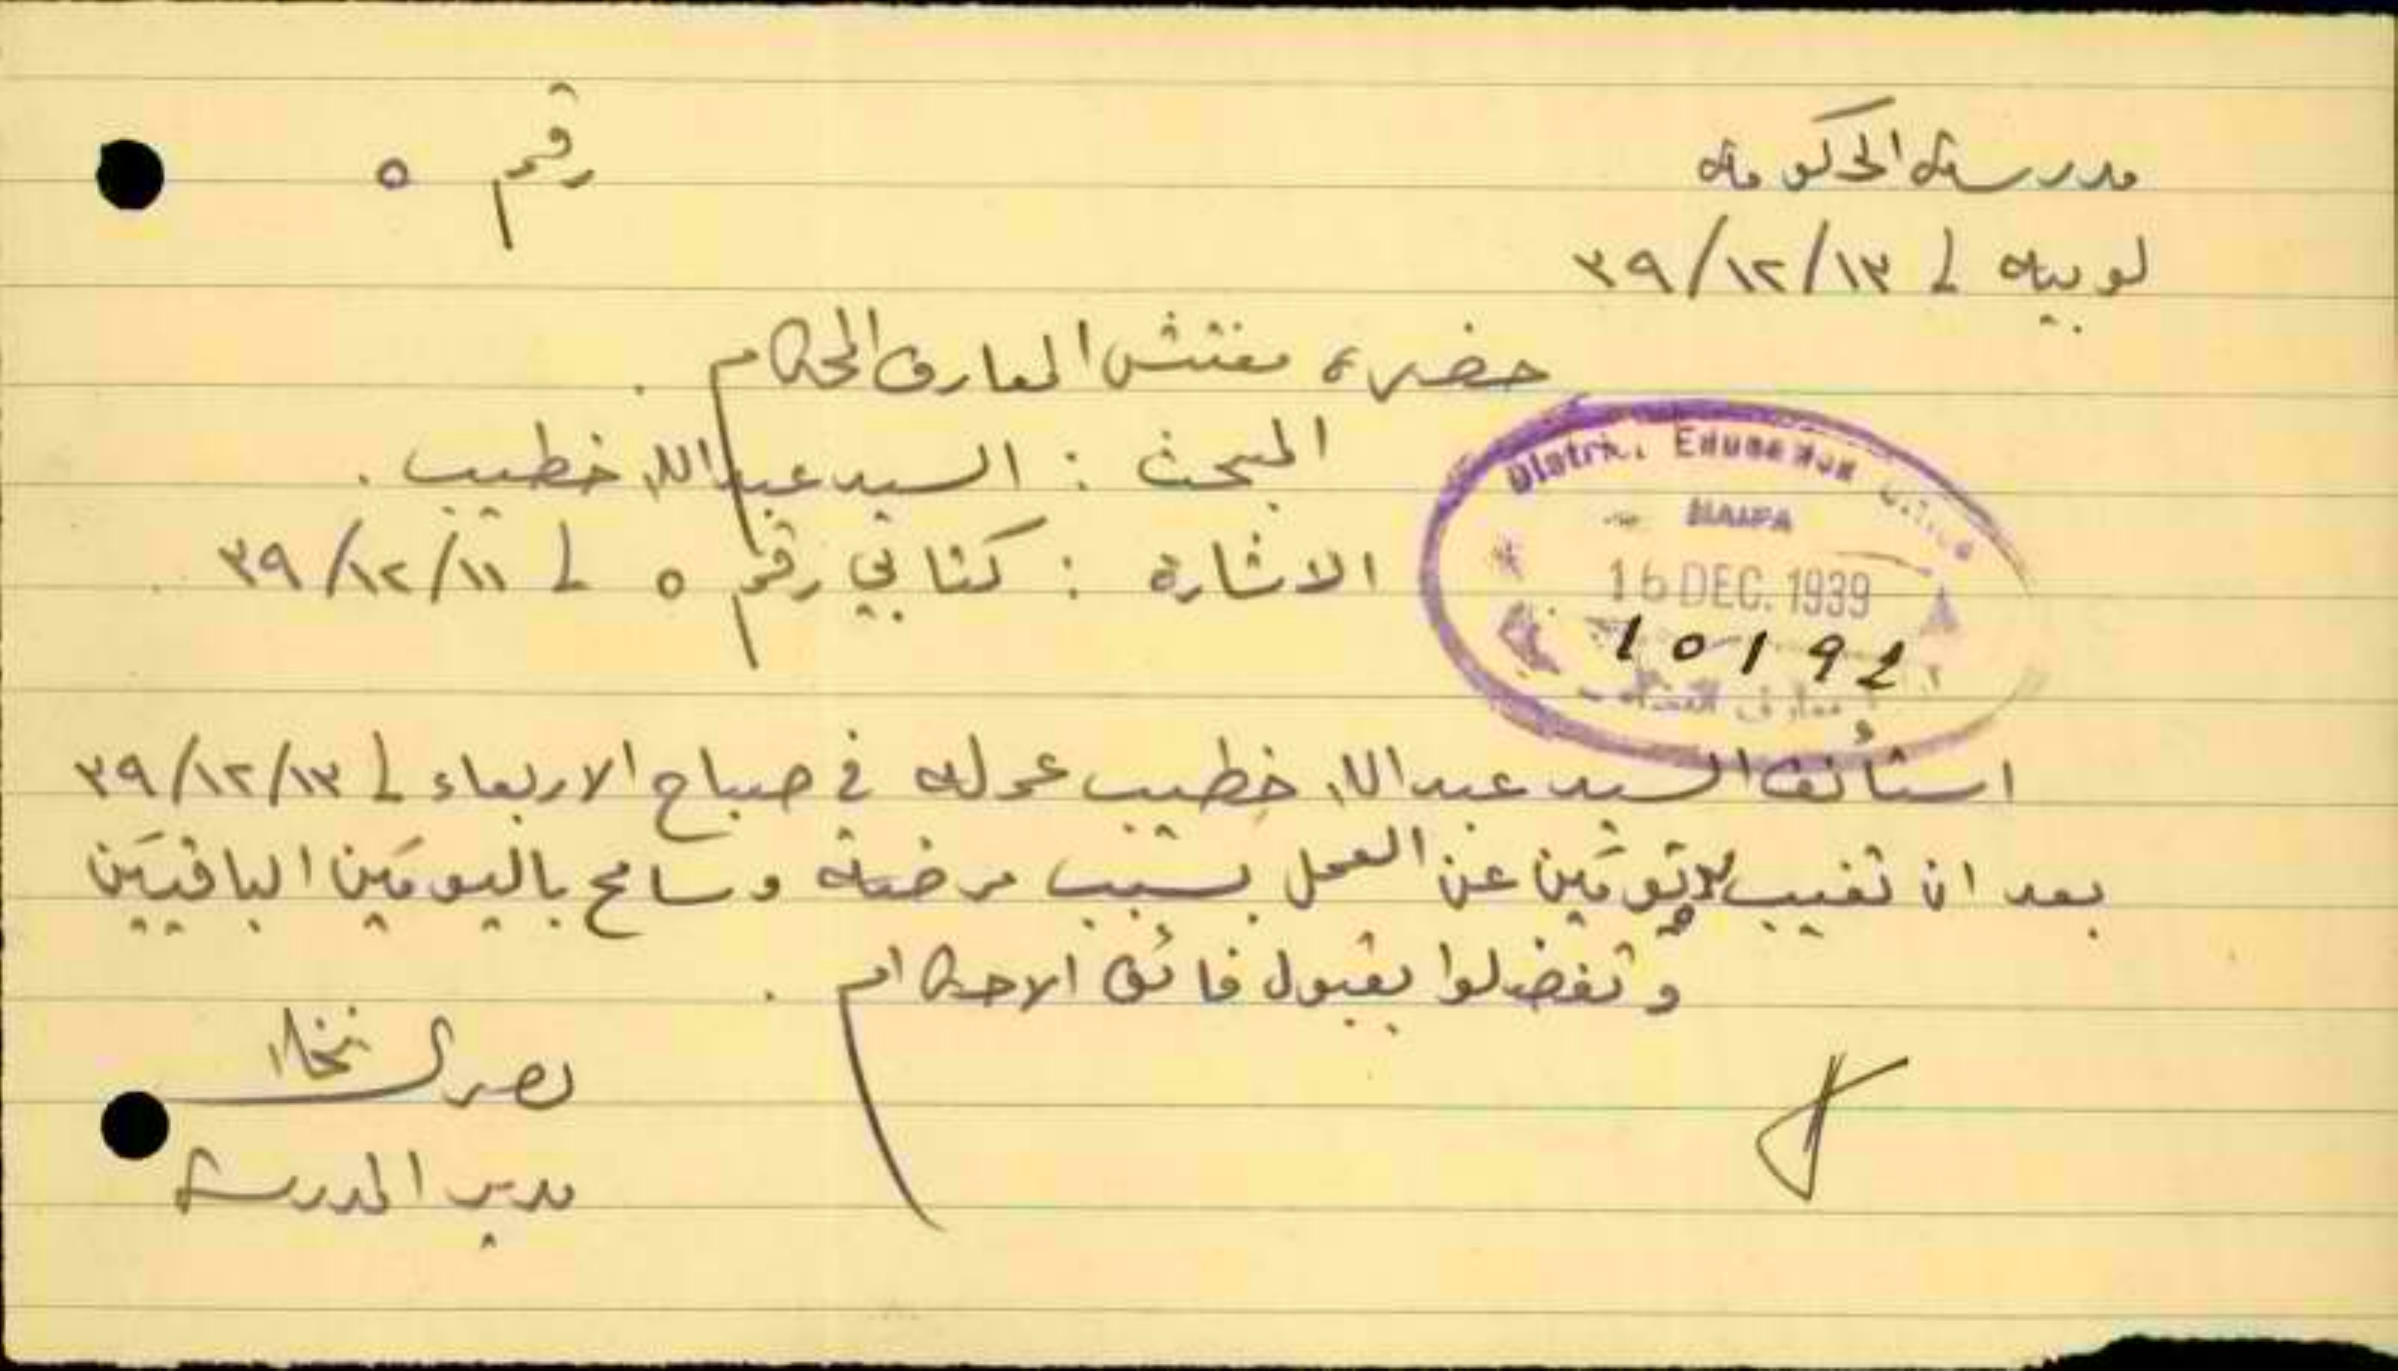 مدرسة الحكومة
رقم ٥
لوبيه في ١٣/١٢/٣٩
حضرة مفتش المعارف المحترم .
المبحث : السيد عبدالله خطيب .
الاشارة : كتابي رقم ٥ في ١١/١٢/٣٩
HAIFA
16 DEC. 1939
10192
استأنف السيد عبدالله خطيب عمله في صباح الاربعاء في ١٣/١٢/٣٩
بعد ان تغيب يومين عن العمل بسبب مرضه وسامح باليومين الباقيين
وتفضلوا بقبول فائق الاحترام .
مدير المدرسة